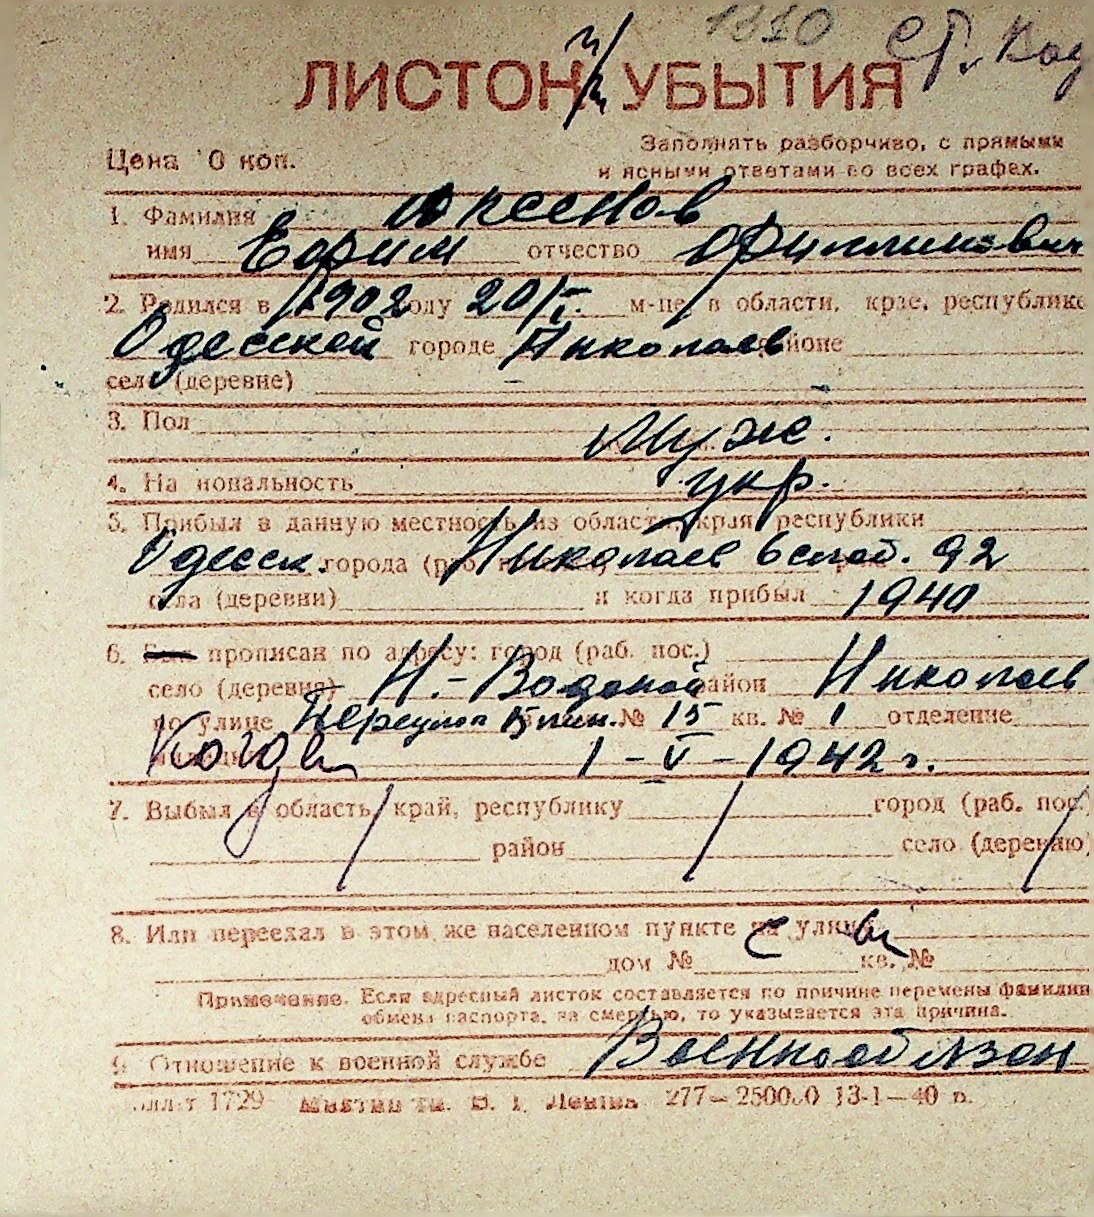 1310 ст. Вод
ЛИСТОК УБЫТИЯ
Цена 10 коп.
Заполнять разборчиво, с прямыми
и ясными ответами во всех графах.
1. Фамилия Аксенов
имя Ефим отчество Филиппович
2. Родился в 1902 году 20/I. м-це, в области, крае, республике
Одесской городе Николаев районе
село (деревне) -
3. Пол Муж.
4. Национальность укр.
5. Прибыл в данную местность из области, края, республики
Одесск. города Николаев 6 слоб. 92
села (деревни) и когда прибыл 1940
6. Был прописан по адресу: город (раб. пос.)
село (деревня) Н.-Водопой район Николаев
по улице Переулок № 15 кв. № 1 отделение
милиции Когда 1-V-1942 г.
7. Выбыл в область, край, республику город (раб. пос.)
район село (деревню)
8. Или переехал в этом же населенном пункте на улицу
дом № кв. №
Примечание. Если адресный листок составляется по причине перемены фамилии
обмена паспорта, за смертью, то указывается эта причина.
9. Отношение к военной службе Военнообязан
1729 277—250000 13-1—40 г.